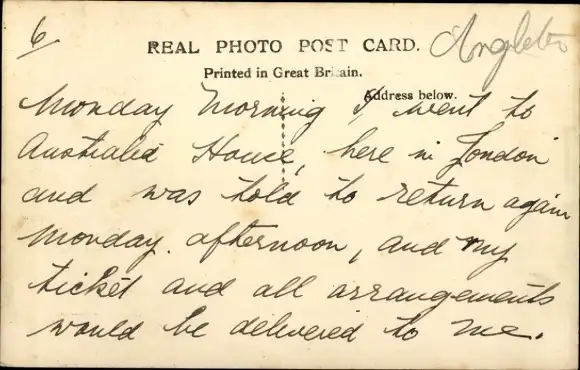 6
REAL PHOTO POST CARD.
Printed in Great Britain.
Address below.
Monday Morning I went to
Australia House, here in London
and was told to return again
Monday. afternoon, and my
ticket and all arrangements
would be delivered to me.